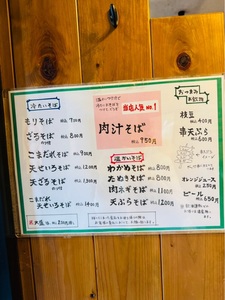 冷たいそば
もりそば 税込 700円
ざるそば 税込 800円
ごまだれそば 税込 900円
天せいろそば 税込 1200円
天ざるそば 税込 1300円
ごまだれ
天せいろそば 税込 1400円
当店人気 NO.1
肉汁そば
税込 950円
温かいそば
わかめそば 税込 800円
たぬきそば 税込 800円
肉ネギそば 税込 1100円
天ぷらそば 税込 1200円
おつまみ
枝豆
税込 400円
串天ぷら
税込 600円
オレンジジュース
税込 250円
ビール
税込 650円